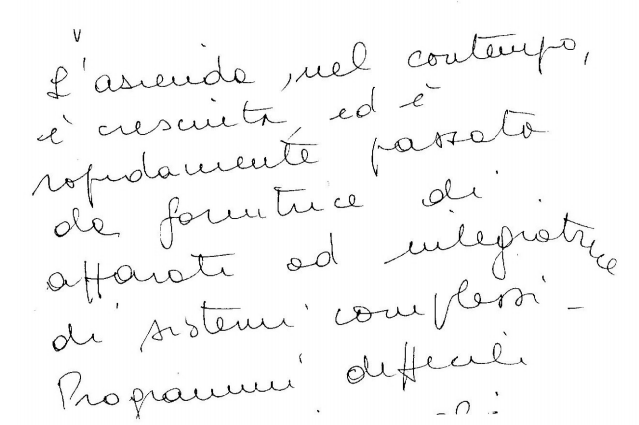 L'azienda, nel contempo,
è cresciuta, ed è
rapidamente passata
da fornitrice di
apparati ad integratrice
di sistemi complessi -
Programmi difficili